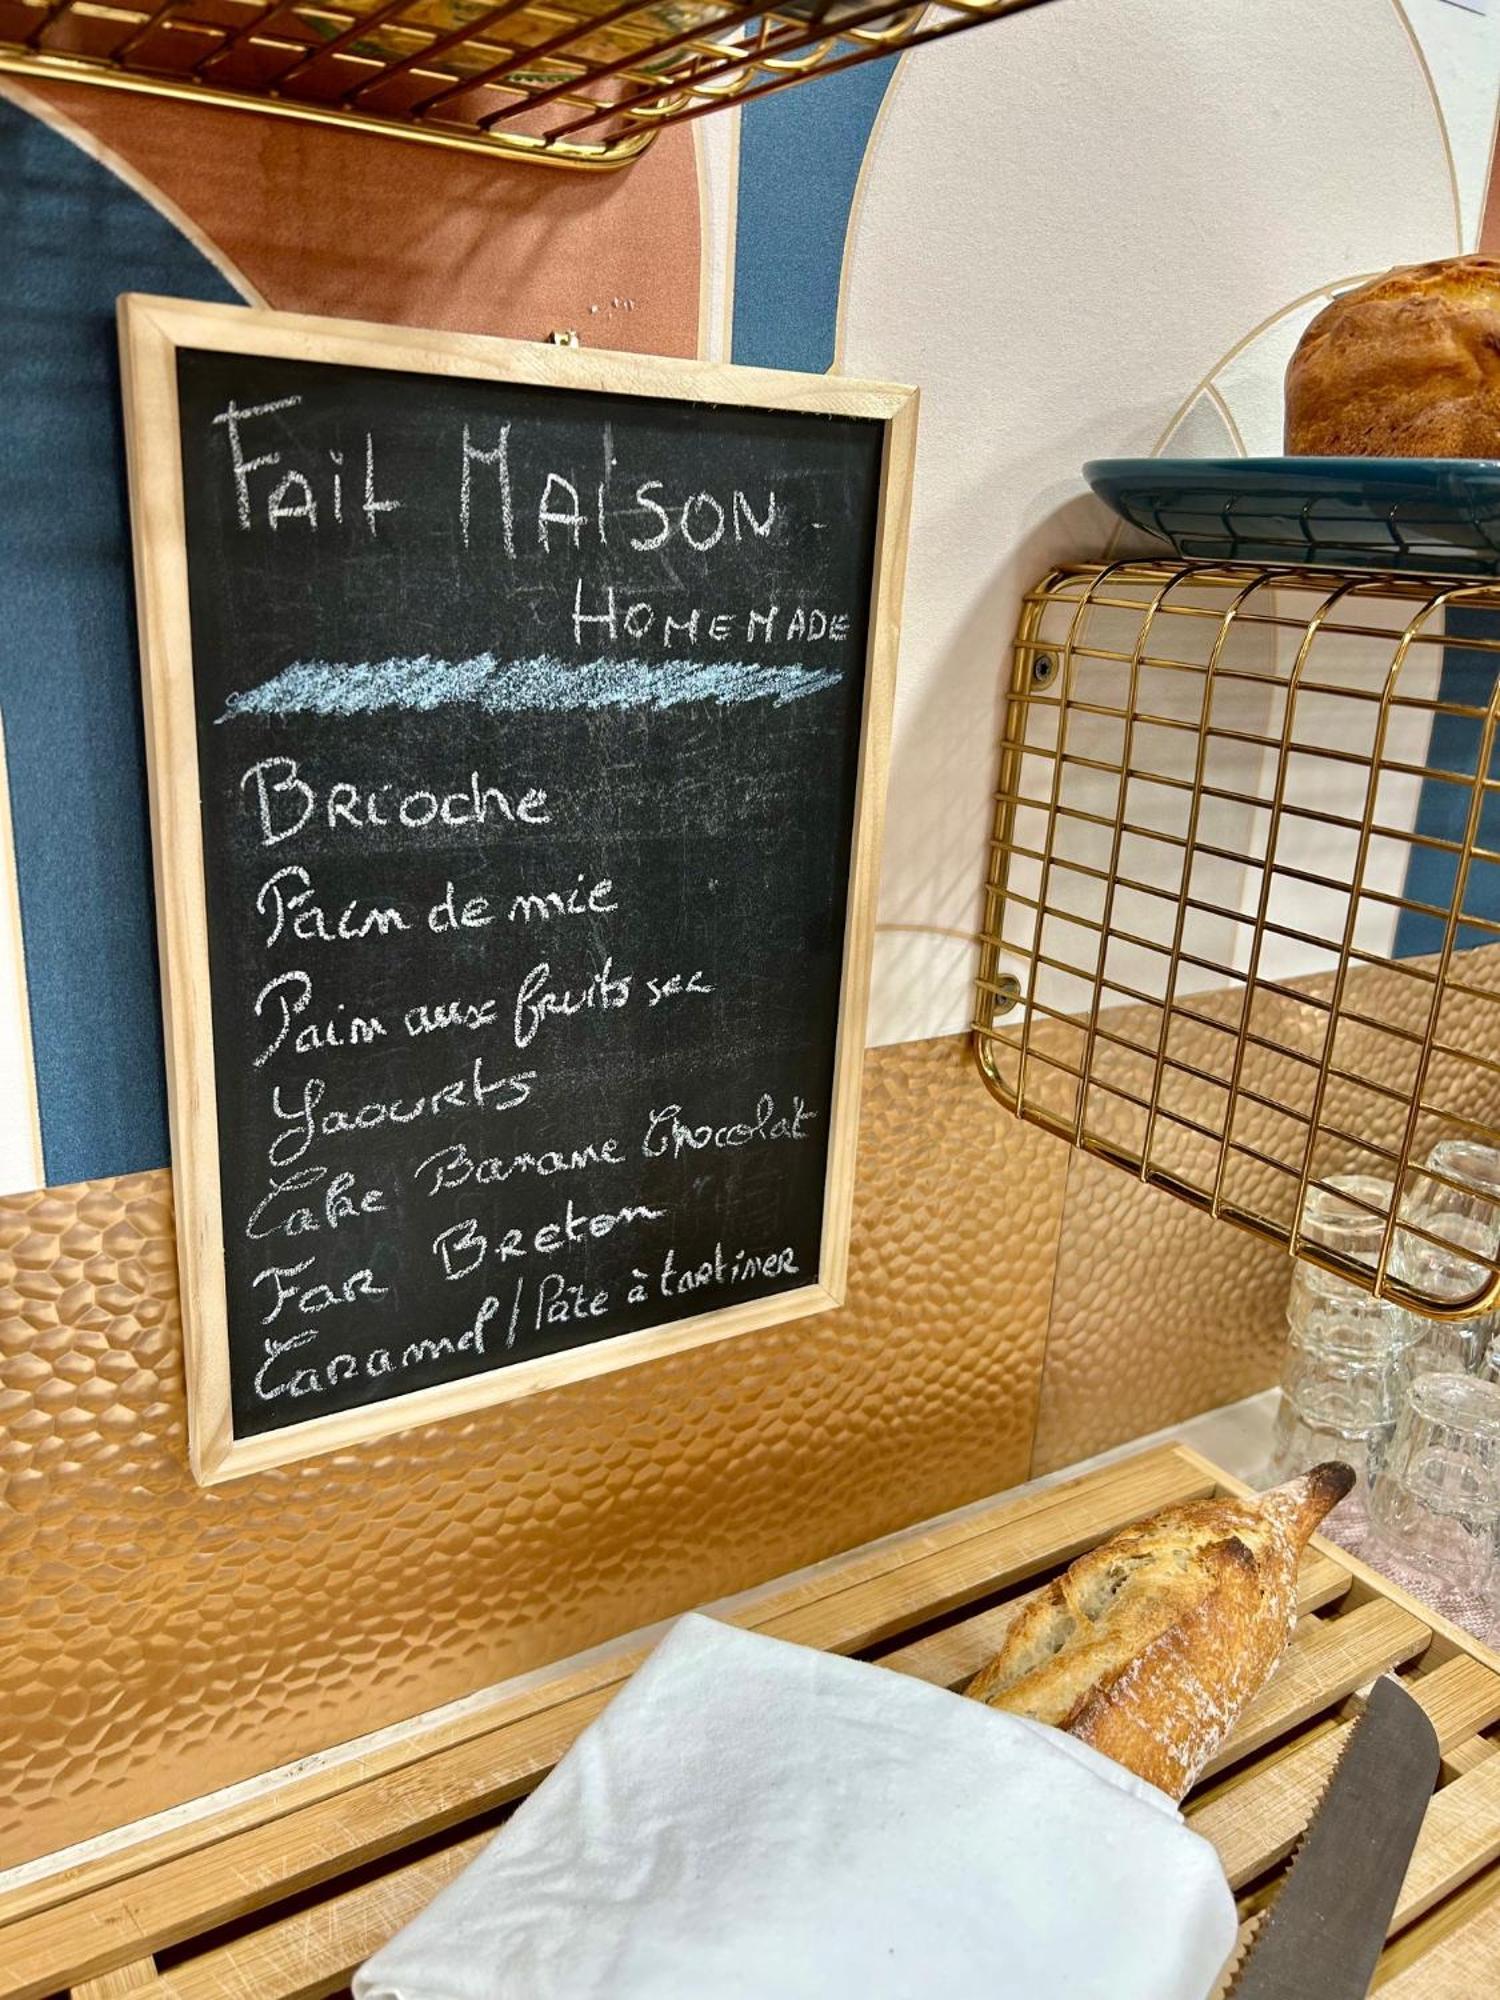 Fait MAISON -
HOMEMADE
Brioche
Pain de mie
Pain aux fruits sec
Yaourts
Cake Banane Chocolat
Far Breton
Caramel / Pâte à tartiner